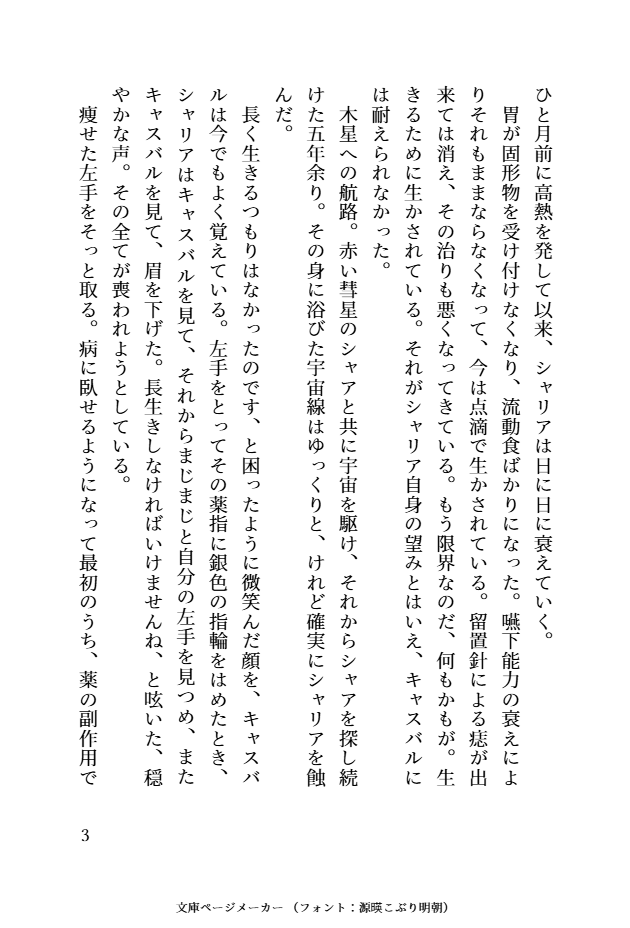 ひと月前に高熱を発して以来、シャリアは日に日に衰えていく。
胃が固形物を受け付けなくなり、流動食ばかりになった。嚥下能力の衰えによ
りそれもままならなくなって、今は点滴で生かされている。留置針による痣が出
来ては消え、その治りも悪くなってきている。もう限界なのだ、何もかもが。生
きるために生かされている。それがシャリア自身の望みとはいえ、キャスバルに
は耐えられなかった。
木星への航路。赤い彗星のシャアと共に宇宙を駆け、それからシャアを探し続
けた五年余り。その身に浴びた宇宙線はゆっくりと、けれど確実にシャリアを蝕
んだ。
長く生きるつもりはなかったのです、と困ったように微笑んだ顔を、キャスバ
ルは今でもよく覚えている。左手をとってその薬指に銀色の指輪をはめたとき、
シャリアはキャスバルを見て、それからまじまじと自分の左手を見つめ、また
キャスバルを見て、眉を下げた。長生きしなければいけませんね、と呟いた、穏
やかな声。その全てが喪われようとしている。
痩せた左手をそっと取る。病に臥せるようになって最初のうち、薬の副作用で
3
文庫ページメーカー（フォント：源暎こぶり明朝）